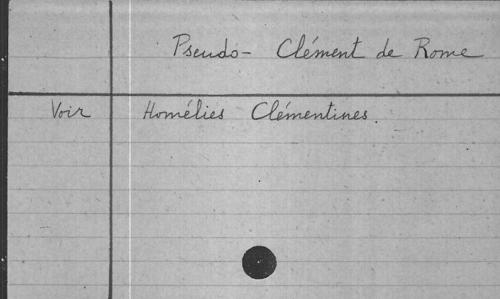 Pseudo- Clément de Rome
Voir Homélies Clémentines.